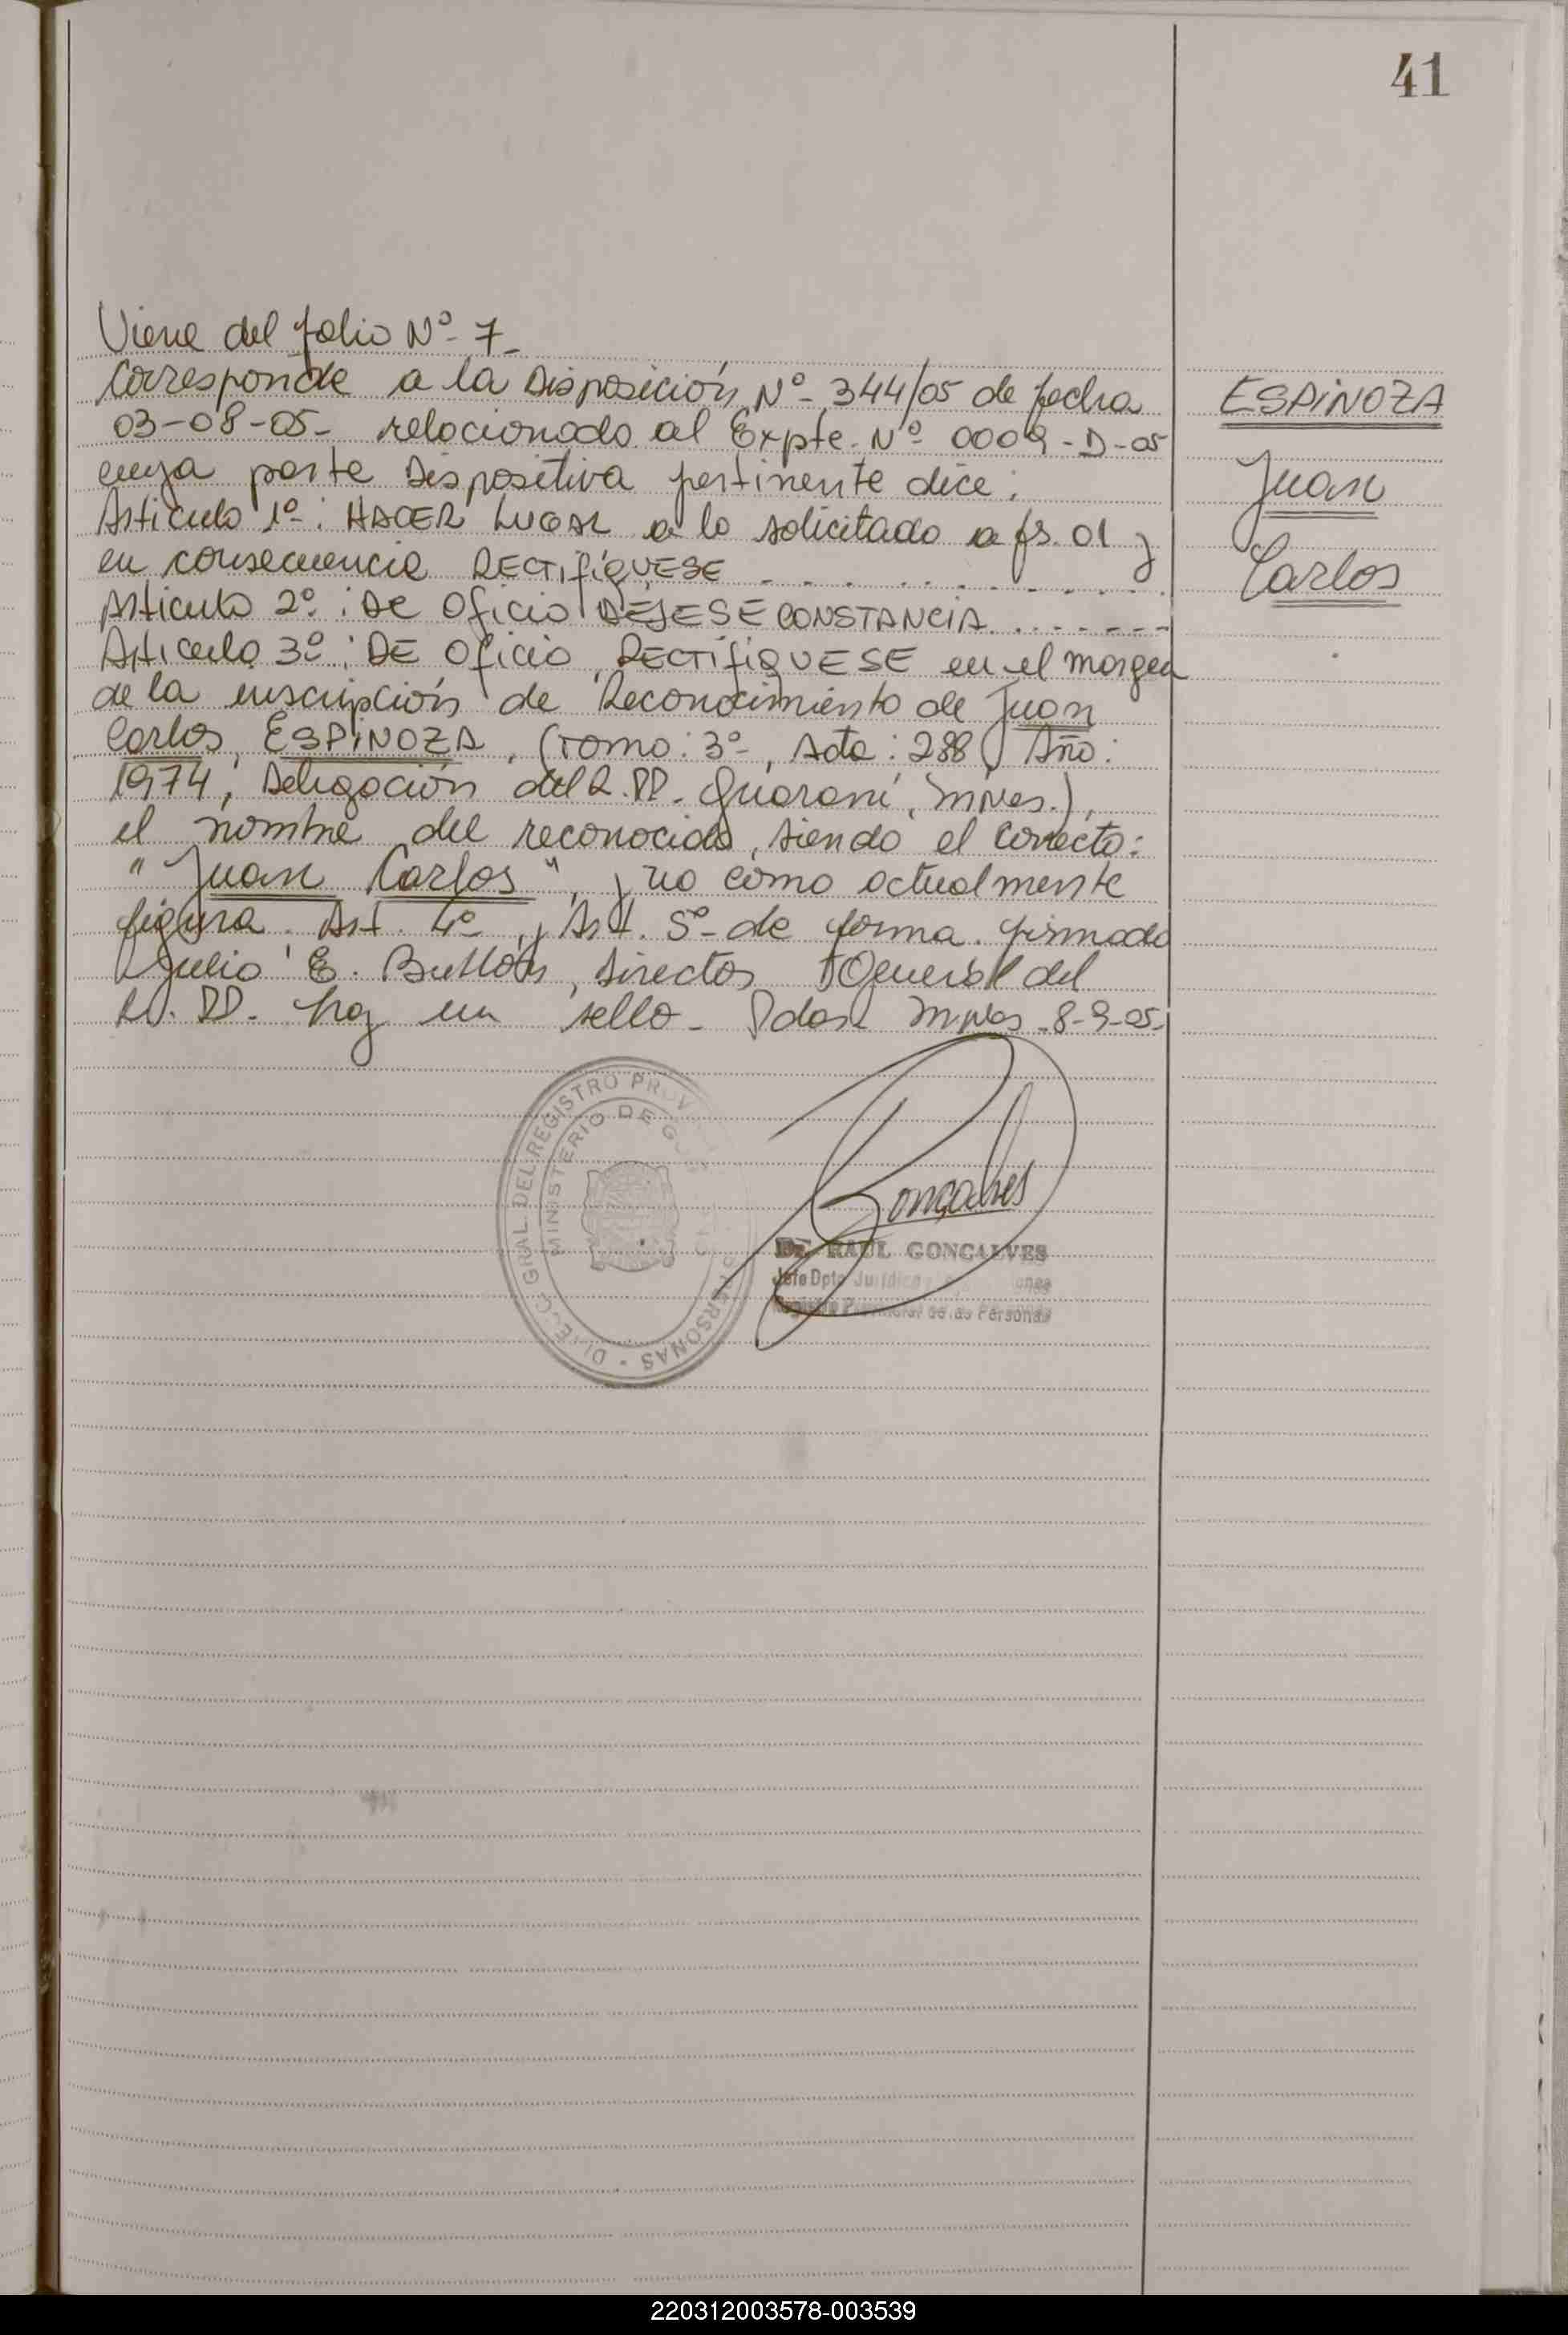 41
Viene del folio Nº- 7-
Corresponde a la Disposición Nº- 344/05 de fecha
03-08-05- relacionado al Expte. Nº 0009-D-05
cuya parte Dispositiva pertinente dice:
Artículo 1º: HACER LUGAR a lo solicitado a fs. 01 y
en consecuencia RECTIFÍQUESE . . . . . . . . . . .
Artículo 2º: De Oficio DÉJESE CONSTANCIA . . . . - - -
Artículo 3º: DE Oficio, RECTIFIQUESE en el margen
de la inscripción de Reconocimiento de Juan
Carlos ESPINOZA, (Tomo: 3º-, Acta: 288, Año:
1974, Delegación del R.PP. Guaraní, Mnes.),
el nombre del reconocido, siendo el correcto:
"Juan Carlos", y no como actualmente
figura. Art. 4º y Art. 5º- de forma. firmado
Julio E. , Director General del
R. PP. hay un sello- Pdas. Mnes -8-9-05-
ESPINOZA
Juan
Carlos
DIREC. GRAL. DEL REGISTRO PROV PERSONAS -
MINISTERIO DE
Gonçalves
Dr. RAUL GONCALVES
Jefe Dpto Jurídico
Registro Provincial de las Personas
220312003578-003539